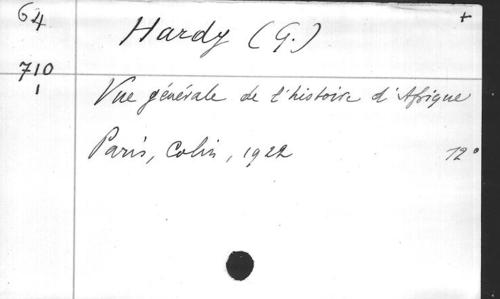 64
Hardy (G.) +
710
1
Vue générale de l'histoire d'Afrique
Paris, Colin, 1922 12°